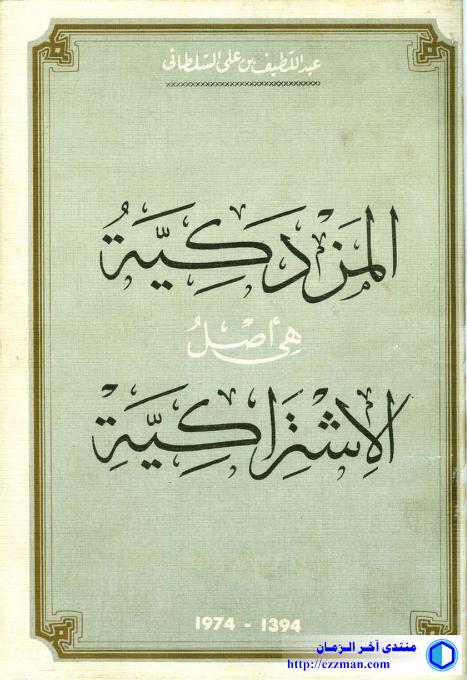 عبد اللطيف بن علي السلطاني
المَزْدَكِيَّةُ
هِيَ أَصْلُ
الاِشْتِرَاكِيَّةِ
1974 - 1394
منتدى آخر الزمان
http://ezzman.com